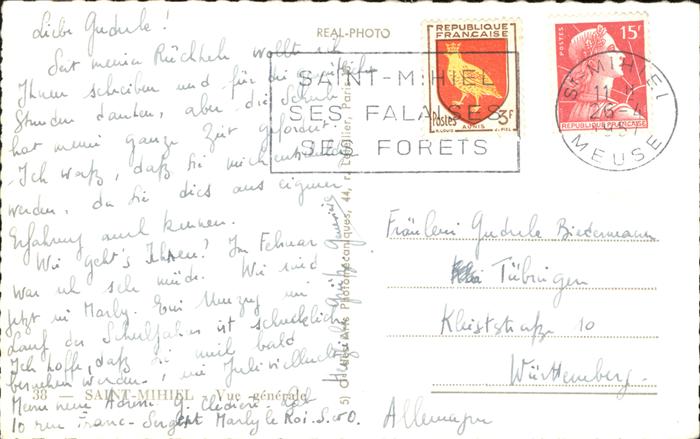 Liebe Gudrule!
Seit meiner Rückkehr wollte ich
Ihnen schreiben und für die
Stunden danken, aber die Schule
hat meine ganze Zeit gefordert.
Ich weiß, daß Sie mich
werden, da Sie dies aus eigener
Erfahrung auch kennen.
Wie geht's Ihnen? Im Februar
war ich sehr müde. Wir sind
jetzt in Marly. Ein Umzug im
Lauf des Schuljahrs ist schrecklich
Ich hoffe, daß Sie mich bald
besuchen werden, im Juli vielleicht
Meine neue Adresse
10 rue Franc-Sergent Marly le Roi. S. et O.
38 — SAINT-MIHIEL — Vue générale
REAL-PHOTO
51 Arts Photomécaniques, 44, r. Letellier, Paris
REPUBLIQUE
FRANÇAISE
Postes 3F
AUNIS
15F
POSTES
REPUBLIQUE FRANÇAISE
SAINT-MIHIEL
SES FALAISES
SES FORETS
ST MIHIEL
MEUSE
Fräulein Gudrule Biedermann
Tübingen
Kleiststraße 10
Württemberg
Allemagne